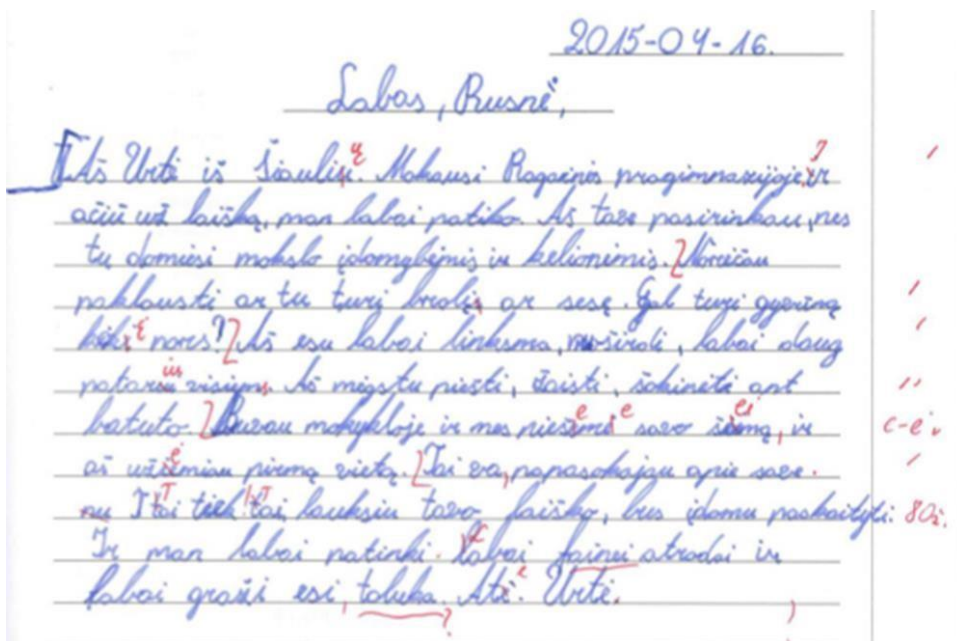 2015-04-16.
Labas, Rusnė,
Aš Urtė iš Šiaulių. Mokausi Ragainės progimnazijoje, ir
ačiū už laišką, man labai patiko. Aš tave pasirinkau, nes
tu domiesi mokslo įdomybėmis ir kelionėmis. Norėčiau
paklausti ar tu turi brolį, ar sesę. Gal turi gyvūną
kokį nors? Aš esu labai linksma, nuoširdi, labai daug
patariu visiems. Aš mėgstu piešti, žaisti, šokinėti ant
batuto. Buvau mokykloje ir mes piešėme savo šeimą, ir
aš užėmiau pirmą vietą. Tai va, papasakojau apie save.
nu Itai tiek tai, lauksiu tavo laiško, bus įdomu paskaityti. 80ž.
Ir man labai patinki. labai fainei atrodai ir
labai graži esi, tobula. Atė. Urtė.